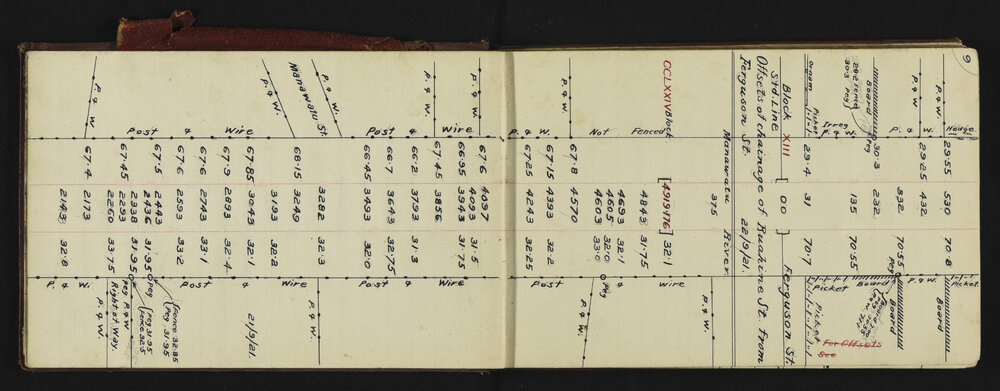 6
Hedge
29.55 530 70.8
Picket
Board
P. & W.
29.25 432
P. & W.
392 70.55
Peg
Board
Board
30.3 232
Peg
28.2 fence
30.3 Peg
Irreg
P. & W.
135 70.55
Board
Picket
For Offsets
See
Ornam
Picket
29.4 31 70.7
Picket
Block XIII [00] Ferguson St.
Std. Line
Offsets of chainage of Ruahine St. from
Ferguson St. 22/9/21.
Manawatu River
375
OCLXXIV Block [4919.476] 32.1
Fenced
4843 31.75
4693 32.1
Not
4605 32.0
4603 33.0
Peg
P. & W.
67.8 4570
67.15 4393 32.2
P. & W.
67.25 4243 32.25
P. & W.
67.6 4097
4093 31.5
66.95 3943 31.75
Wire
Wire
P. & W.
67.45 3856
66.2 3793 31.3
&
&
66.7 3643 32.75
Post
Post
66.45 3493 32.0
Manawatu St.
P. & W.
3282 32.3
P. & W.
68.15 3240
3193 32.2
P. & W.
67.85 3043 32.1
21/9/21.
Wire
Wire
67.9 2893 32.4
67.6 2743 33.1
&
&
67.6 2593 33.2
Post
Post
fence 32.85
Peg 31.95
67.5 2443
2436 31.95 Peg
67.45 2338 31.95
Peg 31.95
fence 32.5
2293
2260 33.75
Peg P. & W.
Right of Way.
P. & W.
67.4 2173
P. & W.
2143 32.8
P. & W.